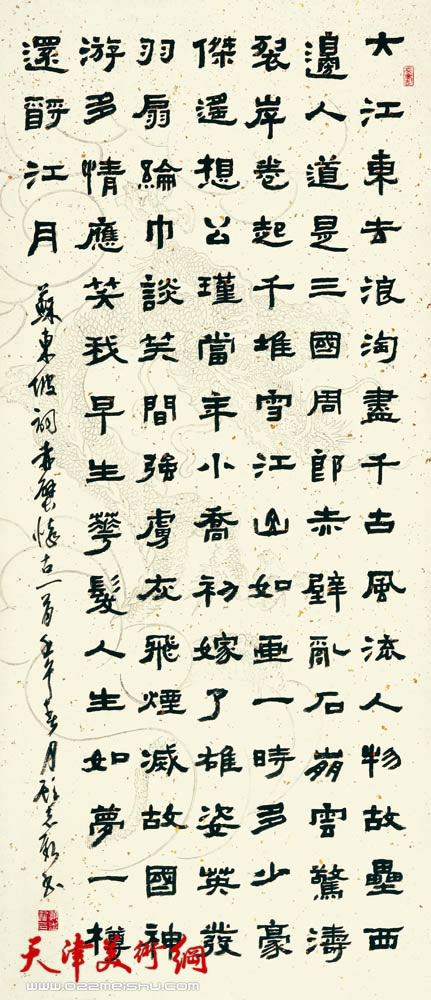 大江東去浪淘盡千古風流人物故壘西
邊人道是三國周郎赤壁亂石崩雲驚濤
裂岸卷起千堆雪江山如畫一時多少豪
傑遥想公瑾當年小喬初嫁了雄姿英發
羽扇綸巾談笑間強虜灰飛煙滅故國神
游多情應笑我早生華髮人生如夢一樽
還酹江月
蘇東坡詞赤壁懷古一首壬午春月志新書
天津美術網
www.022meishu.com